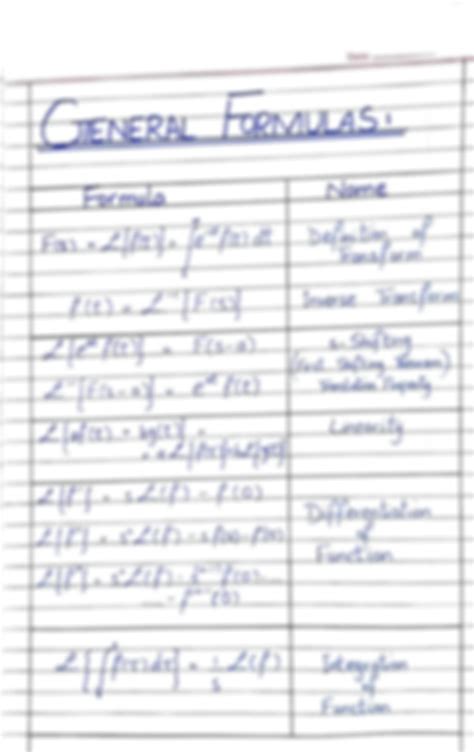 GENERAL FORMULAS:
Formula Name
F(s) = L{f(t)} = ∫e^-st f(t) dt Definition of Transform
f(t) = L^-1{F(s)} Inverse Transform
L{e^at f(t)} = F(s-a) s-Shifting
(First Shifting Theorem)
L^-1{F(s-a)} = e^at f(t) Translation Property
L{af(t) + bg(t)} = Linearity
L{f'} = s L(f) - f(0)
Differentiation
of
Function
L{∫f(τ) dτ} = 1/s L(f) Integration
of
Function